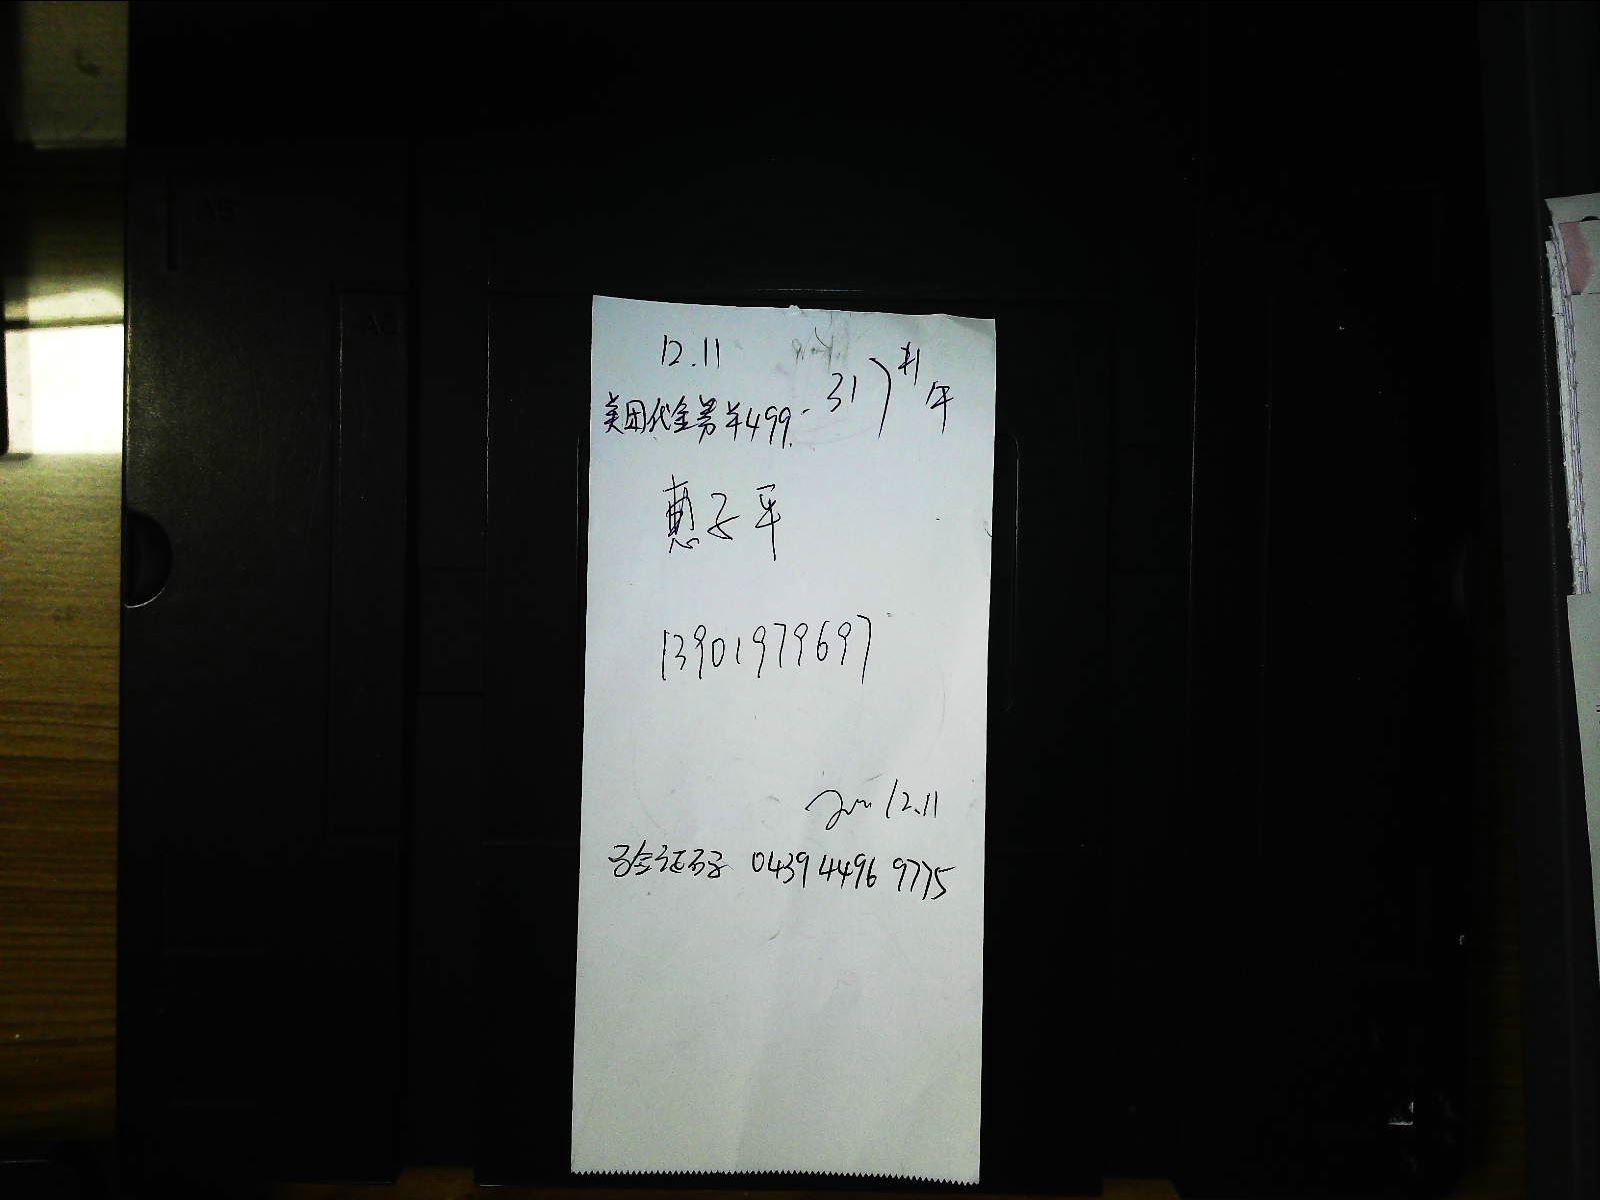 12.11
美团代金券￥499.- 317 卡1年
惠子平
13901979697
12.11
验证码 0439 4496 9775
A5